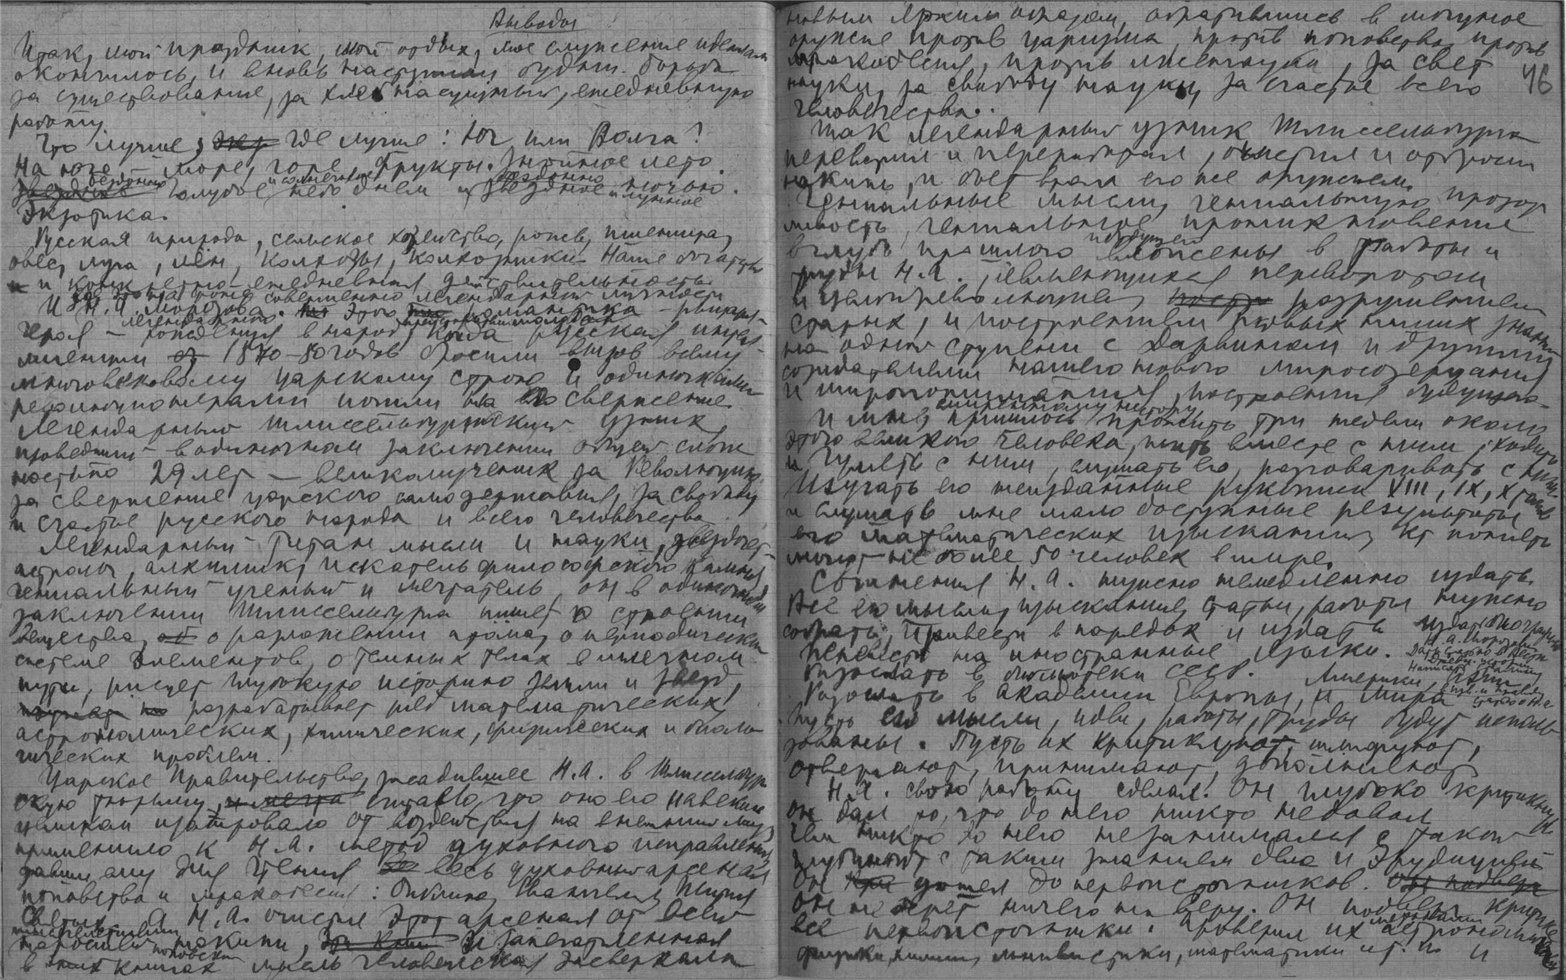 Выводы
Итак, мой праздник, мой отдых, мое служение идеалам
окончилось, и вновь наступили будни. борьба
за существование, за хлеб насущный, ежедневную
работу.
Что лучше, где лучше: Юг или Волга?
На юге море, горы, фрукты. Знойное лето.
бездонно голубое и солнечное небо днем и звездное и лунное ночью.
Экзотика.
Русская природа, сельское хозяйство, рожь, пшеница,
овес, луга, лён, колхозы, колхозники. Наше богатство
и конкретно-ежедневная действительность.
И на фоне совершенно легендарный личности
Н.А. Морозова. Этого романтика – рыцаря-
героя – рождения когда русская интел-
лигенция 1870–80 годов бросили вызов всему
многовековому царскому строю и одиночками
революционерами пошли на его свержение
Легендарный Шлиссельбургский узник
проведший в одиночном заключении общей слож
ностью 29 лет – великомученик за Революцию,
за свержение царского самодержавия, за свободу
и счастье русского народа и всего человечества.
Легендарный Титан мысли и науки, звездочет-
астролог, алхимик, искатель философского камня,
гениальный ученый и мечтатель, он в одиночном
заключении Шлиссельбурга пишет о строении
вещества, о разложении атома, о периодической
системе элементов, о темных телах в млечном
пути, рисует глубокую историю земли и звезд,
разрабатывает ряд математических,
астрономических, химических, физических и биоло
гических проблем.
Царское Правительство, засадившее Н.А. в Шлиссельбург
скую тюрьму, считало, что оно его навеки
изолировало от воздействия на внешний мир,
применило к Н.А. метод духовного исправления
давши ему для чтения весь духовный арсенал
поповства и мракобесия: библию, Евангелие, Жития
Святых. А Н.А. очистил этот арсенал от всей
накипи, и запечатленная
в книгах мысль человеческая засверкала
новым ярким образом, обратившись в могучее
оружие против царизма, против поповства, против
мракобесия, против лженауки, за свет
науки, за свободу науки, за счастье всего
человечества.
46
Так легендарный узник Шлиссельбурга
переварил и переработал, очистил и отбросил
накипь, и бьет врага его же оружием.
Гениальные мысли, гениальную прозор
ливость, гениальное проникновение
вглубь прошлого вложены в работы и
труды Н.А., являющиеся переворотом
и разрушением
старых, и построением новых наших знаний
на одной ступени с Дарвином и другими
создателями нашего нового миросозерцания
и миропонимания, построения будущего.
И мне, пришлось прожить три недели около
этого великого человека, жить вместе с ним, ходить
и гулять с ним, слушать его, разговаривать с ним.
Изучать его неизданные рукописи VIII, IX, X томов
и слушать мне мало доступные результаты
его математических изысканий, кот понять
могут не более 50 человек в мире.
Сочинения Н.А. нужно немедленно издать.
Все его мысли, изыскания, статьи, работы нужно
собрать, привести в порядок и издать
Перевести на иностранные языки.
Разослать в библиотеки СССР.
Разослать в Академии Европы, Америки, Азии и Мира
Пусть его мысли, идеи, работы, труды будут исполь
зованы. Пусть их критикуют, шлифуют,
отвергают, принимают, дополняют
Н.А. свою работу сделал. Он глубоко критикует
он дал то, что до него никто не давал
чем никто до него не занимался с такой
глубиной с таким знанием дела и эрудицией
Он дошел до первоисточников.
Он не берет ничего на веру. Он подверг критике
все первоисточники. Проверил их астрономией,
физики, химии, лингвистики, математики и т. п. и